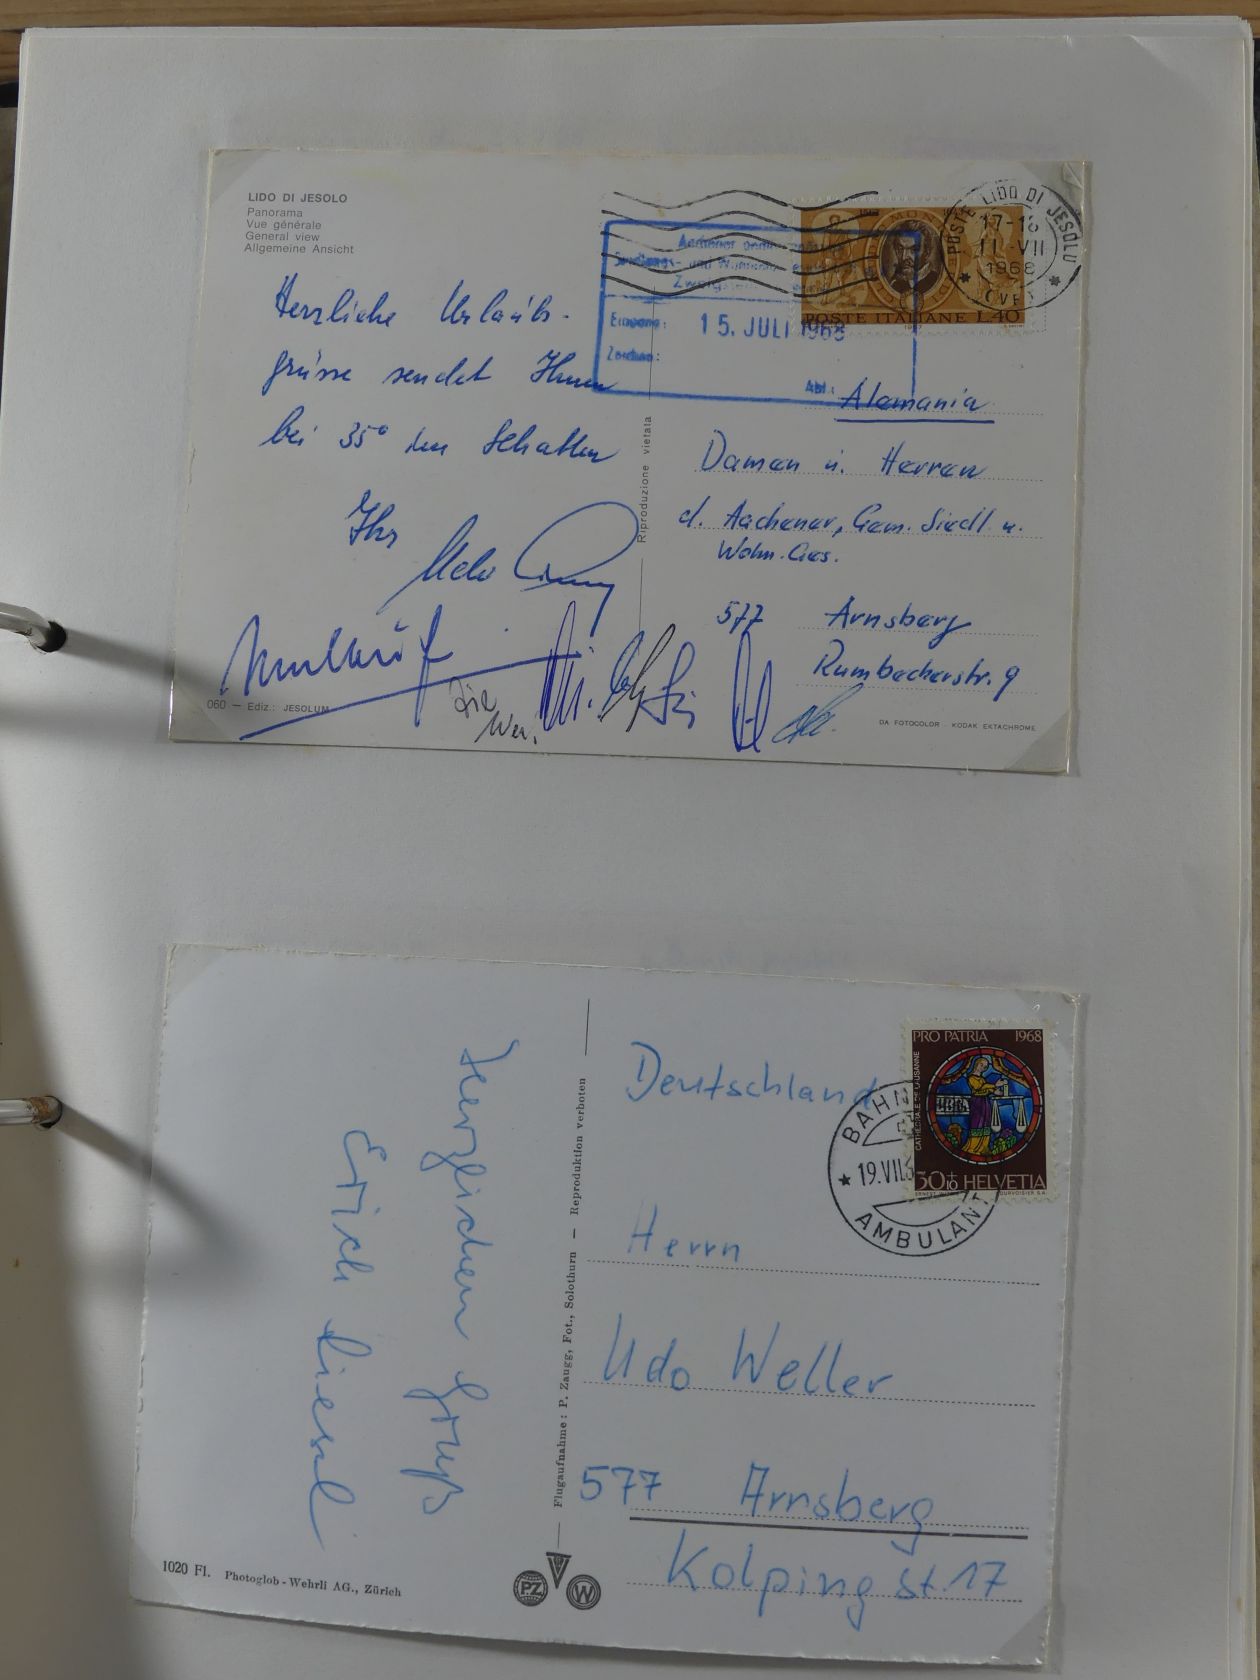 LIDO DI JESOLO
Panorama
Vue générale
General view
Allgemeine Ansicht
Herzliche Urlaubs-
grüsse sendet Ihnen
bei 35° im Schatten
Ihr
Udo
060 — Ediz.: JESOLUM
Riproduzione vietata
POSTE LIDO DI JESOLO
17-18
11-VII
1968
(VE)
POSTE ITALIANE L.40
Aachener
Siedlungs- und
Eingang: 15. JULI 1968
Zeichen:
Abt.:
Alemania
Damen u. Herren
d. Aachener, Gem. Siedl. u.
Wohn. Ges.
577 Arnsberg
Rumbecherstr. 9
DA FOTOCOLOR - KODAK EKTACHROME
Herzlichen Gruß
Erich Liesel
1020 Fl. Photoglob-Wehrli AG., Zürich
Flugaufnahme: P. Zaugg, Fot., Solothurn — Reproduktion verboten
PZ
W
PRO PATRIA 1968
CATHÉDRALE DE LAUSANNE
LIBRA
30+10 HELVETIA
COURVOISIER S.A.
BAHN
19.VII.6
AMBULANT
Deutschland
Herrn
Udo Weller
577 Arnsberg
Kolpingst. 17